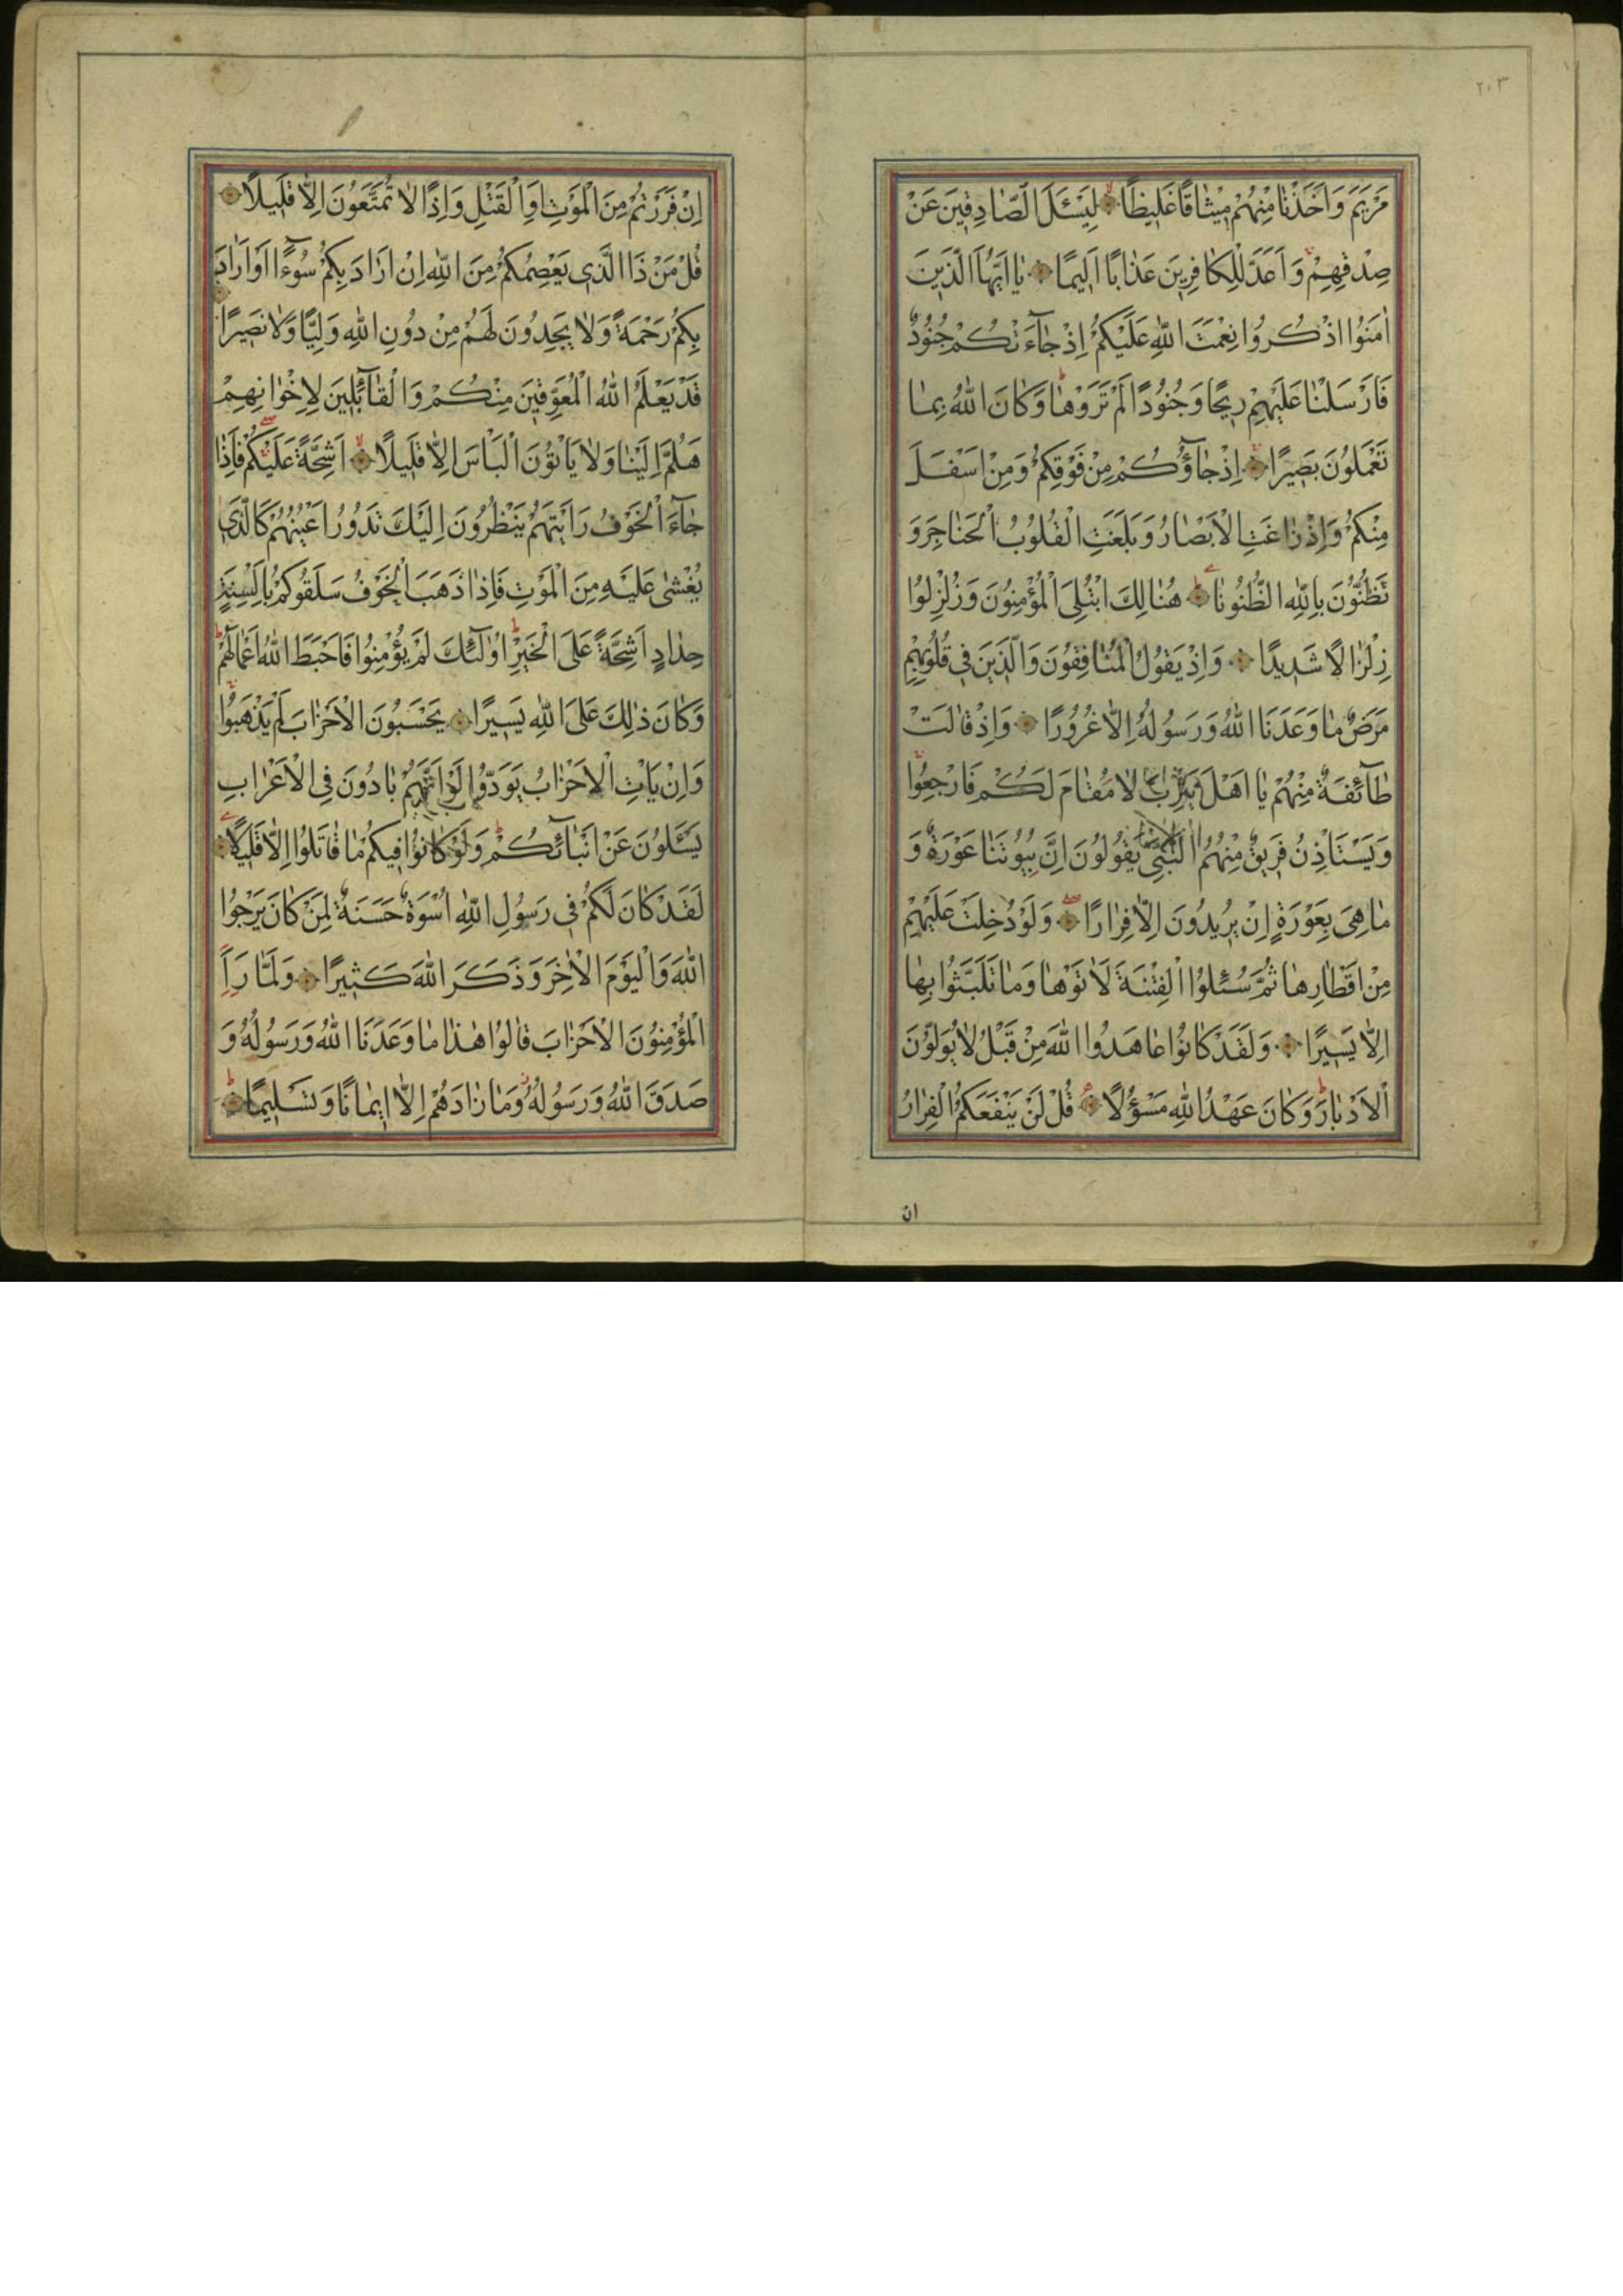 ٢٠٣
مَرْيَمَ وَاَخَذْنَا مِنْهُمْ مِيثَاقًا غَلِيظًا لِيَسْئَلَ الصَّادِقِينَ عَنْ
صِدْقِهِمْ وَاَعَدَّ لِلْكَافِرِينَ عَذَابًا اَلِيمًا يَا اَيُّهَا الَّذِينَ
اٰمَنُوا اذْكُرُوا نِعْمَتَ اللّٰهِ عَلَيْكُمْ اِذْ جَآءَتْكُمْ جُنُودٌ
فَاَرْسَلْنَا عَلَيْهِمْ رِيحًا وَجُنُودًا لَمْ تَرَوْهَا وَكَانَ اللّٰهُ بِمَا
تَعْمَلُونَ بَصِيرًا اِذْ جَآؤُكُمْ مِنْ فَوْقِكُمْ وَمِنْ اَسْفَلَ
مِنْكُمْ وَاِذْ زَاغَتِ الْاَبْصَارُ وَبَلَغَتِ الْقُلُوبُ الْحَنَاجِرَ وَ
تَظُنُّونَ بِاللّٰهِ الظُّنُونَا هُنَالِكَ ابْتُلِيَ الْمُؤْمِنُونَ وَزُلْزِلُوا
زِلْزَالًا شَدِيدًا وَاِذْ يَقُولُ الْمُنَافِقُونَ وَالَّذِينَ فِي قُلُوبِهِمْ
مَرَضٌ مَا وَعَدَنَا اللّٰهُ وَرَسُولُهُ اِلَّا غُرُورًا وَاِذْ قَالَتْ
طَآئِفَةٌ مِنْهُمْ يَا اَهْلَ يَثْرِبَ لَا مُقَامَ لَكُمْ فَارْجِعُوا
وَيَسْتَاْذِنُ فَرِيقٌ مِنْهُمُ النَّبِيَّ يَقُولُونَ اِنَّ بُيُوتَنَا عَوْرَةٌ وَ
مَا هِيَ بِعَوْرَةٍ اِنْ يُرِيدُونَ اِلَّا فِرَارًا وَلَوْ دُخِلَتْ عَلَيْهِمْ
مِنْ اَقْطَارِهَا ثُمَّ سُئِلُوا الْفِتْنَةَ لَاٰتَوْهَا وَمَا تَلَبَّثُوا بِهَا
اِلَّا يَسِيرًا وَلَقَدْ كَانُوا عَاهَدُوا اللّٰهَ مِنْ قَبْلُ لَا يُوَلُّونَ
الْاَدْبَارَ وَكَانَ عَهْدُ اللّٰهِ مَسْؤُلًا قُلْ لَنْ يَنْفَعَكُمُ الْفِرَارُ
ان
اِنْ فَرَرْتُمْ مِنَ الْمَوْتِ اَوِ الْقَتْلِ وَاِذًا لَا تُمَتَّعُونَ اِلَّا قَلِيلًا
قُلْ مَنْ ذَا الَّذِي يَعْصِمُكُمْ مِنَ اللّٰهِ اِنْ اَرَادَ بِكُمْ سُوءًا اَوْ اَرَادَ
بِكُمْ رَحْمَةً وَلَا يَجِدُونَ لَهُمْ مِنْ دُونِ اللّٰهِ وَلِيًّا وَلَا نَصِيرًا
قَدْ يَعْلَمُ اللّٰهُ الْمُعَوِّقِينَ مِنْكُمْ وَالْقَآئِلِينَ لِاِخْوَانِهِمْ
هَلُمَّ اِلَيْنَا وَلَا يَاْتُونَ الْبَاْسَ اِلَّا قَلِيلًا اَشِحَّةً عَلَيْكُمْ فَاِذَا
جَآءَ الْخَوْفُ رَاَيْتَهُمْ يَنْظُرُونَ اِلَيْكَ تَدُورُ اَعْيُنُهُمْ كَالَّذِي
يُغْشٰى عَلَيْهِ مِنَ الْمَوْتِ فَاِذَا ذَهَبَ الْخَوْفُ سَلَقُوكُمْ بِاَلْسِنَةٍ
حِدَادٍ اَشِحَّةً عَلَى الْخَيْرِ اُولٰٓئِكَ لَمْ يُؤْمِنُوا فَاَحْبَطَ اللّٰهُ اَعْمَالَهُمْ
وَكَانَ ذٰلِكَ عَلَى اللّٰهِ يَسِيرًا يَحْسَبُونَ الْاَحْزَابَ لَمْ يَذْهَبُوا
وَاِنْ يَاْتِ الْاَحْزَابُ يَوَدُّوا لَوْ اَنَّهُمْ بَادُونَ فِي الْاَعْرَابِ
يَسْئَلُونَ عَنْ اَنْبَآئِكُمْ وَلَوْ كَانُوا فِيكُمْ مَا قَاتَلُوا اِلَّا قَلِيلًا
لَقَدْ كَانَ لَكُمْ فِي رَسُولِ اللّٰهِ اُسْوَةٌ حَسَنَةٌ لِمَنْ كَانَ يَرْجُوا
اللّٰهَ وَالْيَوْمَ الْاٰخِرَ وَذَكَرَ اللّٰهَ كَثِيرًا وَلَمَّا رَاَ
الْمُؤْمِنُونَ الْاَحْزَابَ قَالُوا هٰذَا مَا وَعَدَنَا اللّٰهُ وَرَسُولُهُ وَ
صَدَقَ اللّٰهُ وَرَسُولُهُ وَمَا زَادَهُمْ اِلَّا اِيمَانًا وَتَسْلِيمًا